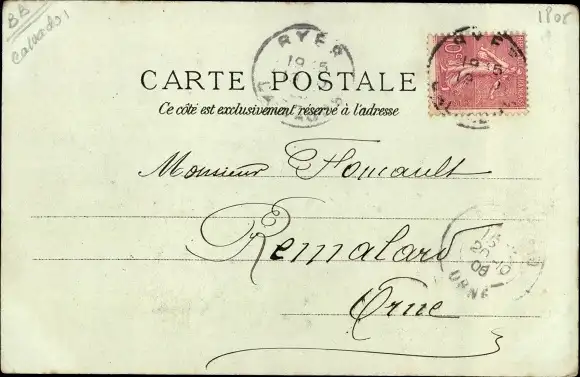 BB
Calvados
1808
RYES
19
CALVADOS
RYES
19
CARTE POSTALE
Ce côté est exclusivement réservé à l'adresse
Monsieur Foucault
Remalard
Orne
ORNE